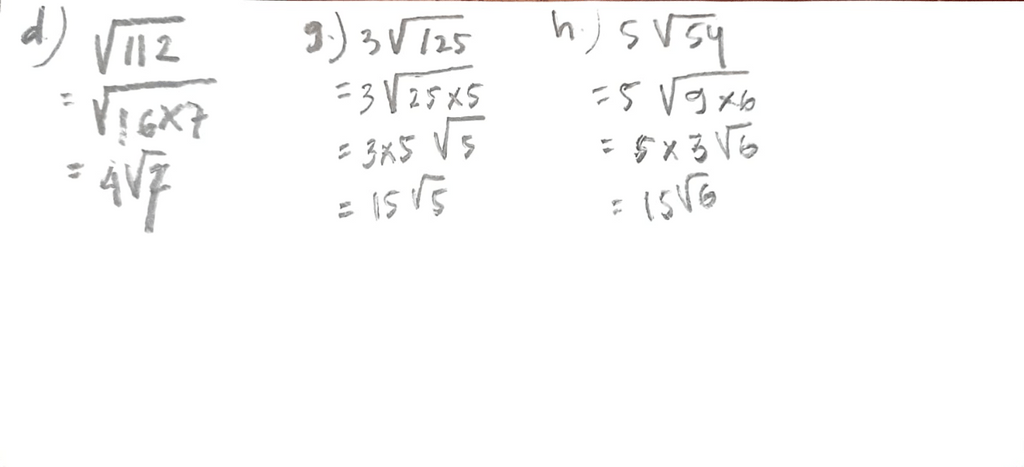 d.) √112
= √16×7
= 4√7
g.) 3√125
= 3√25×5
= 3×5 √5
= 15√5
h.) 5√54
= 5 √9×6
= 5×3√6
= 15√6